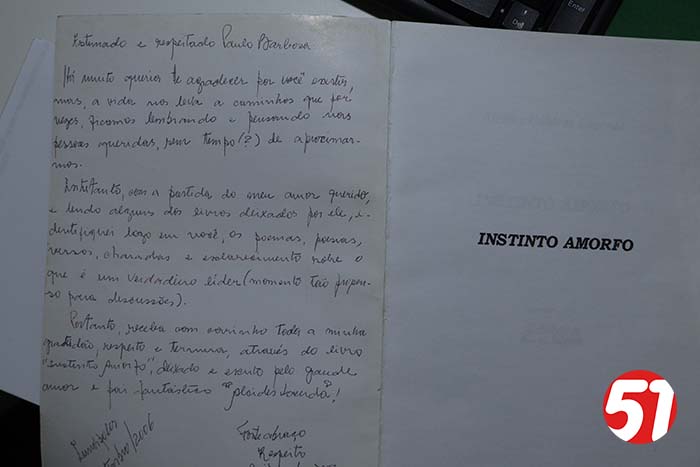 Estimado e respeitado Paulo Barbosa
Há muito queria te agradecer por você existir,
mas, a vida nos leva a caminhos que por
vezes, ficamos lembrando e pensando nas
pessoas queridas, sem tempo (?) de aproximar-
mos.
Entretanto, com a partida do meu amor querido,
e lendo alguns dos livros deixados por ele, i-
dentifiquei logo em você, os poemas, poesias,
versos, charadas e esclarecimento sobre o
que é um verdadeiro líder (momento tão propen-
so para discussões).
Portanto, receba com carinho toda a minha
gratidão, respeito e ternura, através do livro
"Instinto Amorfo", deixado e escrito pelo grande
amor e por fantástico
/2006
Forte abraço
Respeito
INSTINTO AMORFO
51
Enter